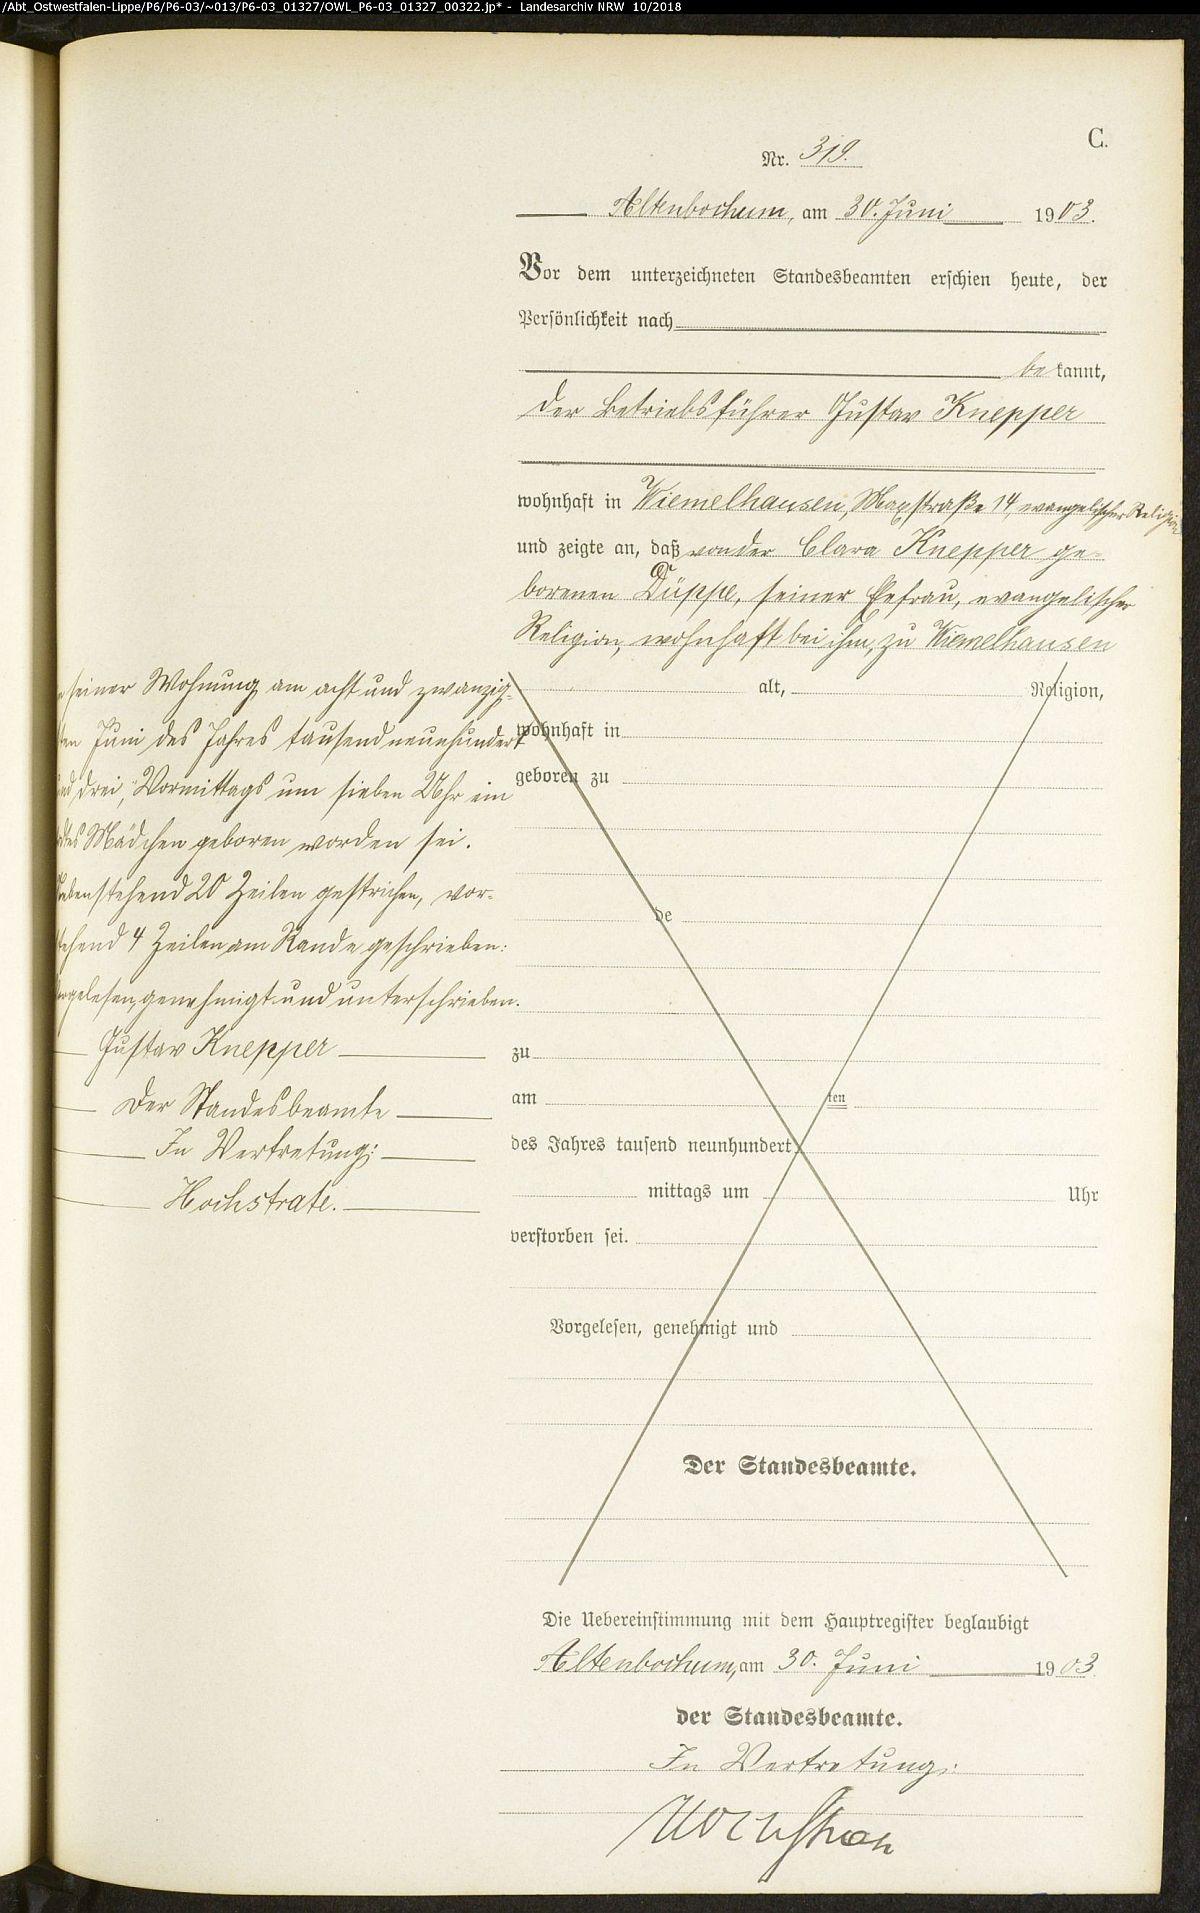 /Abt_Ostwestfalen-Lippe/P6/P6-03/~013/P6-03_01327/OWL_P6-03_01327_00322.jp* - Landesarchiv NRW 10/2018
C.
Nr. 319.
Altenbochum, am 30. Juni 1903.
Vor dem unterzeichneten Standesbeamten erschien heute, der
Persönlichkeit nach
bekannt,
der Betriebsführer Gustav Knepper
wohnhaft in Wiemelhausen, Maxstraße 14, evangelischer Religion
und zeigte an, daß von der Clara Knepper ge-
borenen Düppe, seiner Ehefrau, evangelischer
Religion, wohnhaft bei ihm, zu Wiemelhausen
seiner Wohnung am acht und zwanzig-
ten Juni des Jahres tausend neunhundert
und drei, Vormittags um sieben Uhr ein
Mädchen geboren worden sei.
Nebenstehend 20 Zeilen gestrichen, vor-
stehend 4 Zeilen am Rande geschrieben:
Vorgelesen, genehmigt und unterschrieben.
Gustav Knepper
Der Standesbeamte
In Vertretung:
Hochstrate.
alt, Religion,
wohnhaft in
geboren zu
de
zu
am ten
des Jahres tausend neunhundert
mittags um Uhr
verstorben sei.
Vorgelesen, genehmigt und
Der Standesbeamte.
Die Uebereinstimmung mit dem Hauptregister beglaubigt
Altenbochum, am 30. Juni 1903
der Standesbeamte.
In Vertretung: